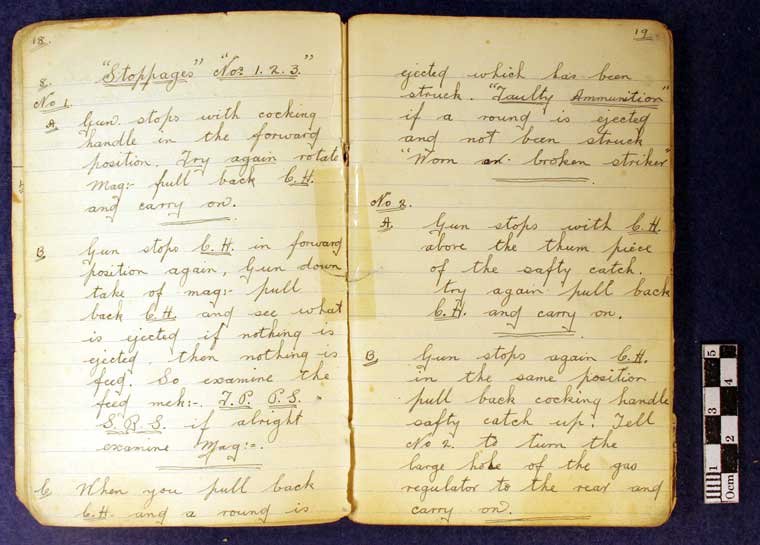 18.
8. "Stoppages" "Nos 1. 2. 3."
No 1.
A. Gun stops with cocking
handle in the forward
position. Try again rotate
Mag:- pull back C.H.
and carry on.
B. Gun stops C.H. in forward
position again, Gun down
take of mag:- pull
back C.H. and see what
is ejected if nothing is
ejected then nothing is
feed. So examine the
feed mch:-. F.P. P.S.
S.R.S. if alright
examine Mag:-.
C When you pull back
C.H. and a round is
19.
ejected which has been
struck. "Faulty Ammunition"
if a round is ejected
and not been struck
"Worn or broken striker"
No 2.
A. Gun stops with C.H.
above the thum piece
of the safty catch.
try again pull back
C.H. and carry on.
B. Gun stops again C.H.
in the same position
pull back cocking handle
safty catch up. Tell
No 2. to turn the
large hole of the gas
regulator to the rear and
carry on.
0cm 1 2 3 4 5